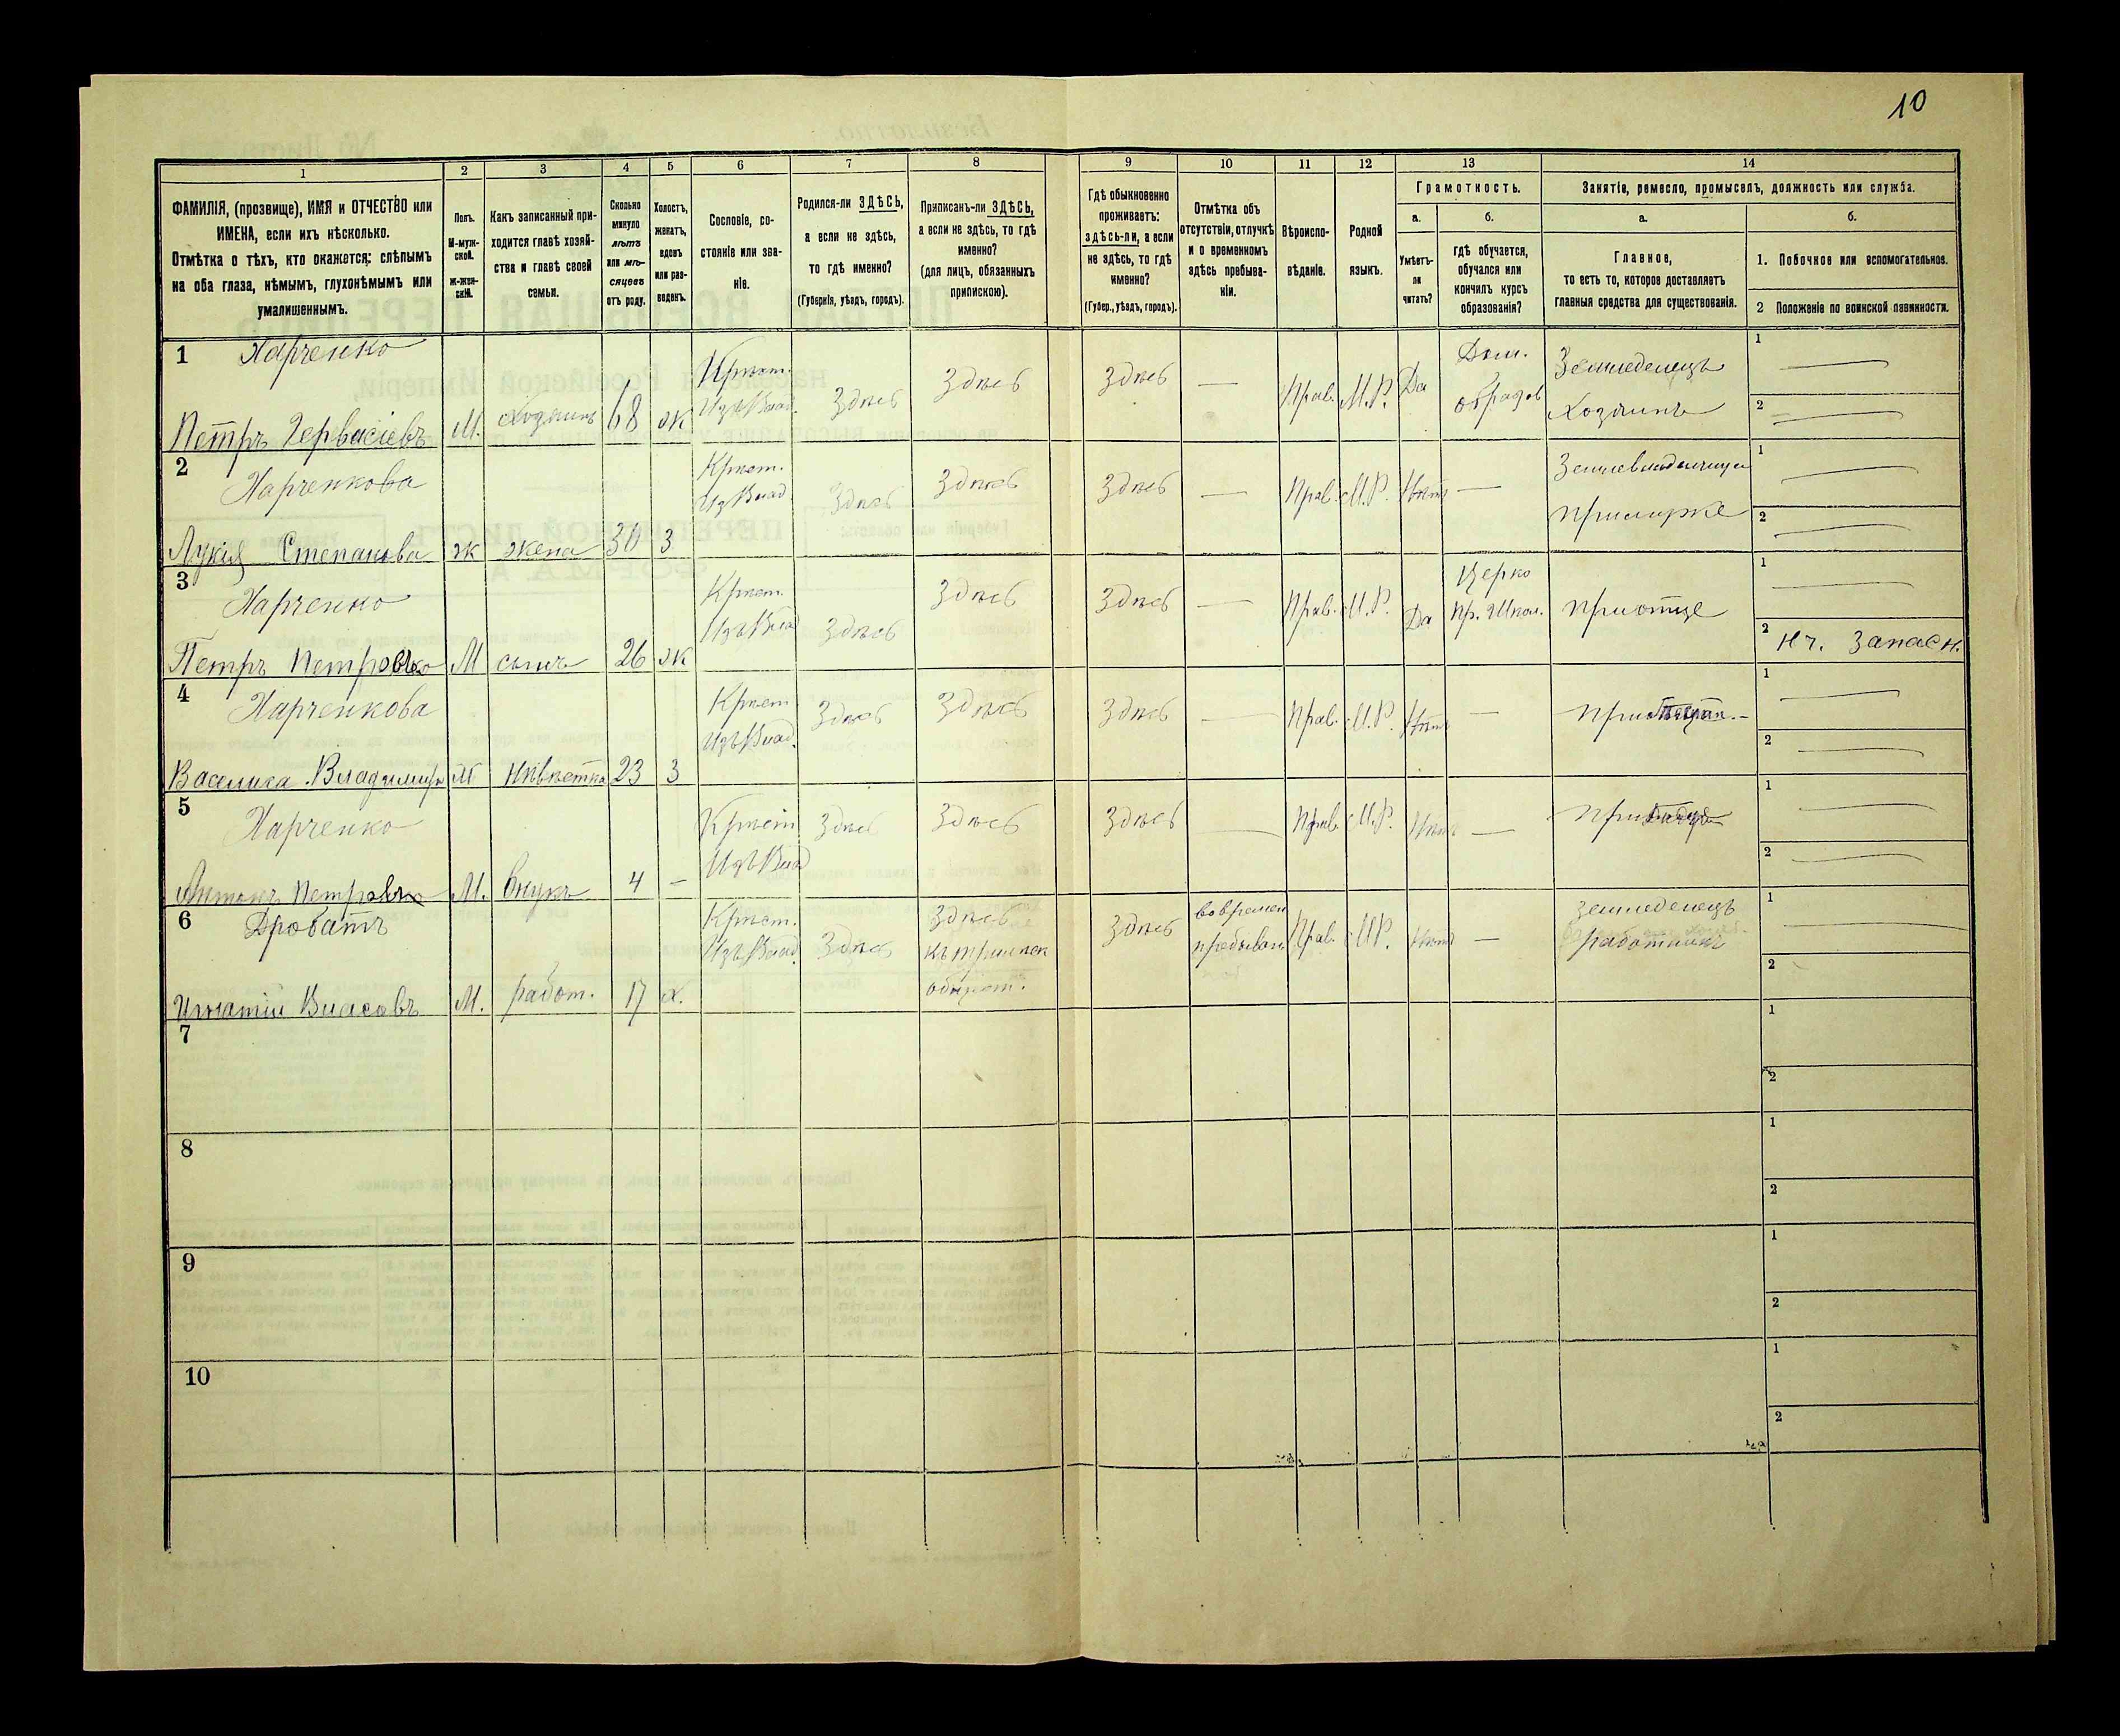 10
1 2 3 4 5 6 7 8 9 10 11 12 13 14
ФАМИЛІЯ, (прозвище), ИМЯ и ОТЧЕСТВО или
ИМЕНА, если ихъ нѣсколько.
Отмѣтка о тѣхъ, кто окажется: слѣпымъ
на оба глаза, нѣмымъ, глухонѣмымъ или
умалишеннымъ.
Полъ.
М-муж-
ской.
ж-жен-
скій.
Какъ записанный при-
ходится главѣ хозяй-
ства и главѣ своей
семьи.
Сколько
минуло
лѣтъ
или мѣ-
сяцевъ
отъ роду.
Холостъ,
женатъ,
вдовъ
или раз-
веденъ.
Сословіе, со-
стояніе или зва-
ніе.
Родился-ли ЗДѢСЬ,
а если не здѣсь,
то гдѣ именно?
(Губернія, уѣздъ, городъ).
Приписанъ-ли ЗДѢСЬ,
а если не здѣсь, то гдѣ
именно?
(для лицъ, обязанныхъ
припискою).
Гдѣ обыкновенно
проживаетъ:
здѣсь-ли, а если
не здѣсь, то гдѣ
именно?
(Губер., уѣздъ, городъ).
Отмѣтка объ
отсутствіи, отлучкѣ
и о временномъ
здѣсь пребыва-
ніи.
Вѣроиспо-
вѣданіе.
Родной
языкъ.
Грамотность.
а.
Умѣетъ-
ли
читать?
б.
гдѣ обучается,
обучался или
кончилъ курсъ
образованія?
Занятіе, ремесло, промыселъ, должность или служба.
а.
Главное,
то есть то, которое доставляетъ
главныя средства для существованія.
б.
1. Побочное или вспомогательное.
2 Положеніе по воинской повинности.
1 Харченко
Петръ Гервасіевъ М. хозяинъ 68 ж Крест. Изъ Влад. Здѣсь Здѣсь Здѣсь — Прав. М.Р. Да Дом. образов Земледелецъ Хозяинъ 1 — 2 —
2 Харченкова
Лукія Степанова ж жена 30 З Крест. Изъ Влад Здѣсь Здѣсь Здѣсь — Прав. М.Р. Нѣтъ — Землевладелица При муже 1 — 2 —
3 Харченко
Петръ Петровъ М сынъ 26 ж Крест. Изъ Влад Здѣсь Здѣсь Здѣсь — Прав. М.Р. Да Церко Пр. Школ. При отце 1 — 2 Нч. Запасн.
4 Харченкова
Василиса Владимир М Нѣвѣстка 23 З Крест Изъ Влад. Здѣсь Здѣсь Здѣсь — Прав. М.Р. Нѣтъ — При 1 — 2 —
5 Харченко
Антонъ Петровъ М. внукъ 4 — Крест Изъ Влад Здѣсь Здѣсь Здѣсь — Прав. М.Р. Нѣтъ — При 1 — 2 —
6 Дробатъ
Игнатій Власовъ М. работ. 17 х. Крест. Изъ Влад. Здѣсь Здѣсь къ общест. Здѣсь времен пребыван Прав. М.Р. Нѣтъ — земледелецъ работникъ 1 — 2
7 1
2
8 1
2
9 1
2
10 1
2